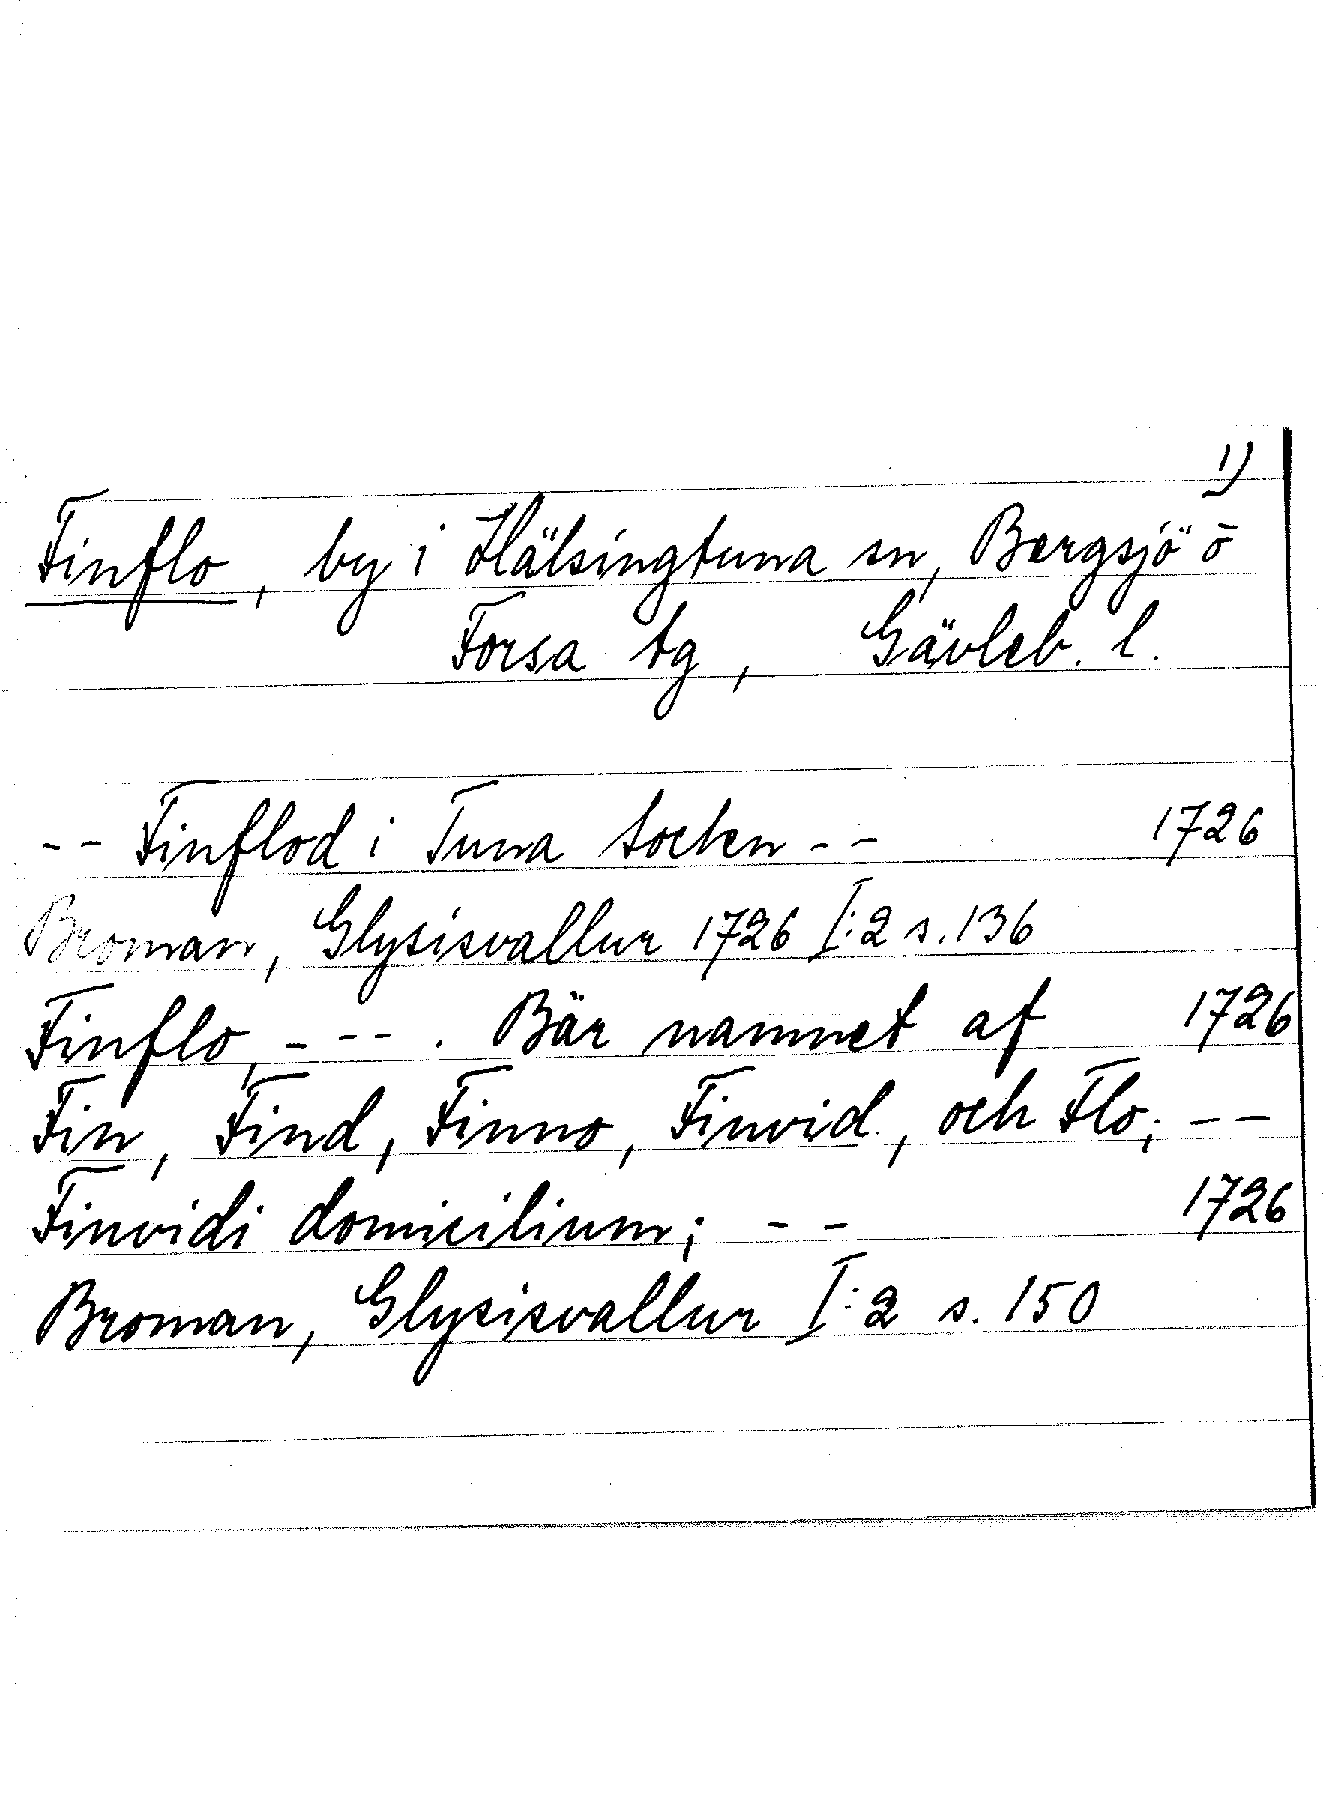 1)
Finflo, by i Hälsingtuna sn, Bergsjö o
Forsa tg, Gävleb. l.
-- Finflod i Tuna socken -- 1726
Broman, Glysisvallur 1726 I:2 s. 136
Finflo, ---. Bär namnet af 1726
Fin, Find, Finno, Finvid, och Flo; --
Finvidi domicilium; -- 1726
Broman, Glysisvallur I:2 s. 150